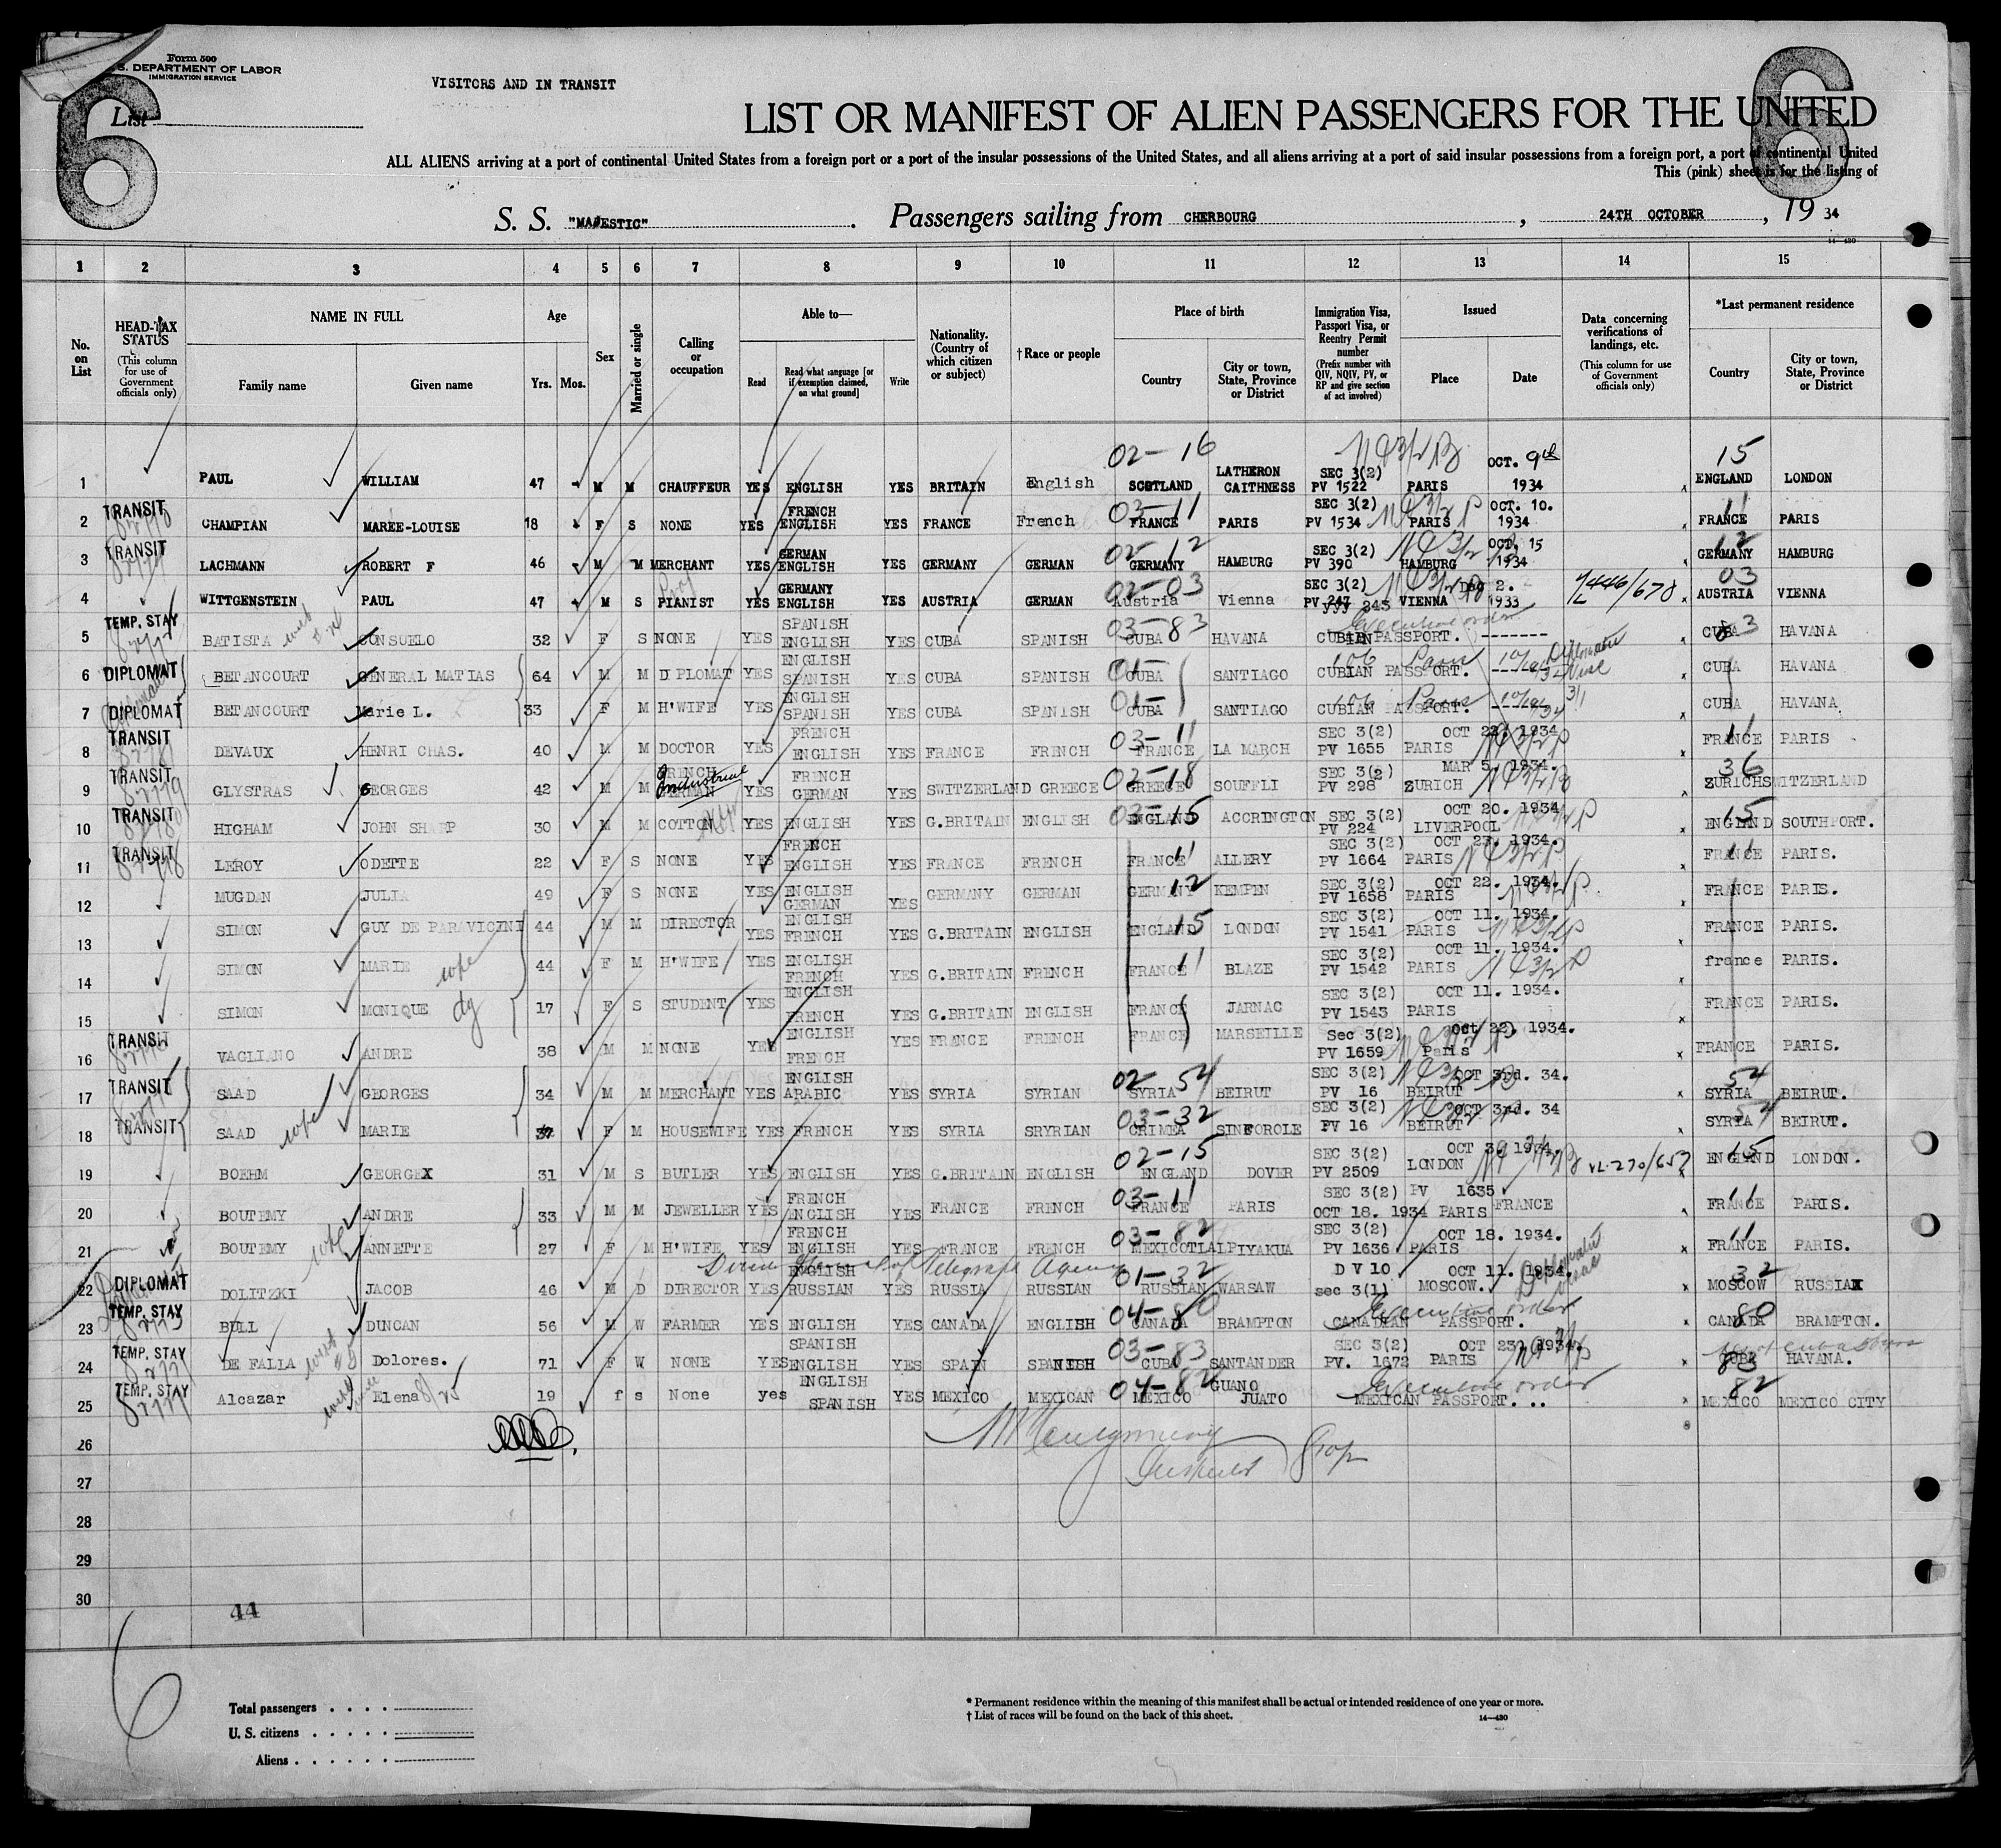 Form 500
U.S. DEPARTMENT OF LABOR
IMMIGRATION SERVICE
VISITORS AND IN TRANSIT
6 6
List
LIST OR MANIFEST OF ALIEN PASSENGERS FOR THE UNITED
ALL ALIENS arriving at a port of continental United States from a foreign port or a port of the insular possessions of the United States, and all aliens arriving at a port of said insular possessions from a foreign port, a port of continental United
This (pink) sheet is for the listing of
S. S. "MAJESTIC". Passengers sailing from CHERBOURG, 24TH OCTOBER, 19 34
14-430
1 2 3 4 5 6 7 8 9 10 11 12 13 14 15
No. on List
HEAD-TAX STATUS (This column for use of Government officials only)
NAME IN FULL Family name Given name
Age Yrs. Mos.
Sex
Married or single
Calling or occupation
Able to— Read Read what language [or if exemption claimed, on what ground] Write
Nationality. (Country of which citizen or subject)
†Race or people
Place of birth Country City or town, State, Province or District
Immigration Visa, Passport Visa, or Reentry Permit number (Prefix number with QIV, NQIV, PV, or RP and give section of act involved)
Issued Place Date
Data concerning verifications of landings, etc. (This column for use of Government officials only)
*Last permanent residence Country City or town, State, Province or District
1 PAUL WILLIAM 47 M M CHAUFFEUR YES ENGLISH YES BRITAIN English 02-16 SCOTLAND LATHERON CAITHNESS SEC 3(2) PV 1522 PARIS OCT. 9th 1934 15 ENGLAND LONDON
2 TRANSIT CHAMPIAN MAREE-LOUISE 18 F S NONE YES FRENCH ENGLISH YES FRANCE French 03-11 FRANCE PARIS SEC 3(2) PV 1534 PARIS OCT. 10. 1934 11 FRANCE PARIS
3 TRANSIT LACHMANN ROBERT F 46 M M MERCHANT YES GERMAN ENGLISH YES GERMANY GERMAN 02-12 GERMANY HAMBURG SEC 3(2) PV 390 HAMBURG OCT. 15 1934 12 GERMANY HAMBURG
4 WITTGENSTEIN PAUL 47 M S PIANIST YES GERMANY ENGLISH YES AUSTRIA GERMAN 02-03 Austria Vienna SEC 3(2) PV 245 VIENNA 2. 1933 446/670 03 AUSTRIA VIENNA
5 TEMP. STAY BATISTA CONSUELO 32 F S NONE YES SPANISH ENGLISH YES CUBA SPANISH 03-83 CUBA HAVANA Executive order CUBIAN PASSPORT. ------- CUBA HAVANA
6 DIPLOMAT BETANCOURT GENERAL MATIAS 64 M M DIPLOMAT YES ENGLISH SPANISH YES CUBA SPANISH 01- CUBA SANTIAGO 156 Paris CUBIAN PASSPORT. Diplomatic Vise CUBA HAVANA
7 DIPLOMAT BETANCOURT Marie L. 33 F M H'WIFE YES ENGLISH SPANISH YES CUBA SPANISH 01- CUBA SANTIAGO 156 Paris CUBIAN PASSPORT. CUBA HAVANA
8 TRANSIT DEVAUX HENRI CHAS. 40 M M DOCTOR YES FRENCH ENGLISH YES FRANCE FRENCH 03-11 FRANCE LA MARCH SEC 3(2) PV 1655 PARIS OCT 22. 1934 11 FRANCE PARIS
9 TRANSIT GLYSTRAS GEORGES 42 M M Industrial YES FRENCH GERMAN YES SWITZERLAND GREECE 02-18 GREECE SOUFFLI SEC 3(2) PV 298 ZURICH MAR 5. 1934. 36 ZURICH SWITZERLAND
10 TRANSIT HIGHAM JOHN SHARP 30 M M COTTON YES ENGLISH YES G.BRITAIN ENGLISH 03-15 ENGLAND ACCRINGTON SEC 3(2) PV 224 LIVERPOOL OCT 20. 1934 15 ENGLAND SOUTHPORT.
11 TRANSIT LEROY ODETTE 22 F S NONE YES FRENCH ENGLISH YES FRANCE FRENCH 11 FRANCE ALLERY SEC 3(2) PV 1664 PARIS OCT 23. 1934. 11 FRANCE PARIS.
12 MUGDAN JULIA 49 F S NONE YES ENGLISH GERMAN YES GERMANY GERMAN 12 GERMANY KEMPEN SEC 3(2) PV 1658 PARIS OCT 22. 1934. FRANCE PARIS.
13 SIMON GUY DE PARAVICINI 44 M M DIRECTOR YES ENGLISH FRENCH YES G.BRITAIN ENGLISH 15 ENGLAND LONDON SEC 3(2) PV 1541 PARIS OCT 11. 1934. FRANCE PARIS.
14 SIMON MARIE wife 44 F M H'WIFE YES ENGLISH FRENCH YES G.BRITAIN FRENCH 11 FRANCE BLAZE SEC 3(2) PV 1542 PARIS OCT 11. 1934. france PARIS.
15 SIMON MONIQUE dg 17 F S STUDENT YES ENGLISH FRENCH YES G.BRITAIN ENGLISH FRANCE JARNAC SEC 3(2) PV 1543 PARIS OCT 11. 1934. FRANCE PARIS.
16 TRANSIT VAGLIANO ANDRE 38 M M NONE YES ENGLISH FRENCH YES FRANCE FRENCH FRANCE MARSEILLE Sec 3(2) PV 1659 Paris oct 22. 1934. FRANCE PARIS.
17 TRANSIT SAAD GEORGES 34 M M MERCHANT YES ENGLISH ARABIC YES SYRIA SYRIAN 02-54 SYRIA BEIRUT SEC 3(2) PV 16 BEIRUT OCT 3rd. 34. 54 SYRIA BEIRUT.
18 TRANSIT SAAD wife MARIE 37 F M HOUSEWIFE YES FRENCH YES SYRIA SRYRIAN 03-32 CRIMEA SINFOROLE SEC 3(2) PV 16 BEIRUT OCT 3rd. 34 54 SYRIA BEIRUT.
19 BOEHM GEORGEX 31 M S BUTLER YES ENGLISH YES G.BRITAIN ENGLISH 02-15 ENGLAND DOVER SEC 3(2) PV 2509 LONDON OCT 3. 1934. VL-270/657 15 ENGLAND LONDON.
20 BOUTEMY ANDRE 33 M M JEWELLER YES FRENCH ENGLISH YES FRANCE FRENCH 03-11 FRANCE PARIS SEC 3(2) PV 1635 OCT 18. 1934 PARIS FRANCE 11 FRANCE PARIS.
21 BOUTEMY wife ANNETTE 27 F M H'WIFE YES FRENCH ENGLISH YES FRANCE FRENCH 03-82 MEXICO TIALPIYAKUA SEC 3(2) PV 1636 PARIS OCT 18. 1934. 11 FRANCE PARIS.
22 DIPLOMAT DOLITZKI JACOB 46 M D DIRECTOR YES ENGLISH RUSSIAN YES RUSSIA RUSSIAN 01-32 RUSSIAN WARSAW D V 10 sec 3(1) MOSCOW. OCT 11. 1934. Diplomatic Visae 32 MOSCOW RUSSIAX
of Telegraph Agency
23 TEMP. STAY BULL DUNCAN 56 M W FARMER YES ENGLISH YES CANADA ENGLISH 04-80 CANADA BRAMPTON Executive order CANADIAN PASSPORT. 80 CANADA BRAMPTON.
24 TEMP. STAY DE FALLA Dolores. 71 F W NONE YES SPANISH ENGLISH YES SPAIN SPANISH 03-83 CUBA SANTANDER SEC 3(2) PV. 1672 PARIS OCT 23. 1934. 83 CUBA HAVANA.
25 TEMP. STAY Alcazar Elena 19 f s None yes ENGLISH SPANISH YES MEXICO MEXICAN 04-82 MEXICO GUANO JUATO Executive order MEXICAN PASSPORT... 82 MEXICO MEXICO CITY
26
27
28
29
30
44
6
Total passengers
U. S. citizens
Aliens
* Permanent residence within the meaning of this manifest shall be actual or intended residence of one year or more.
† List of races will be found on the back of this sheet.
14-430